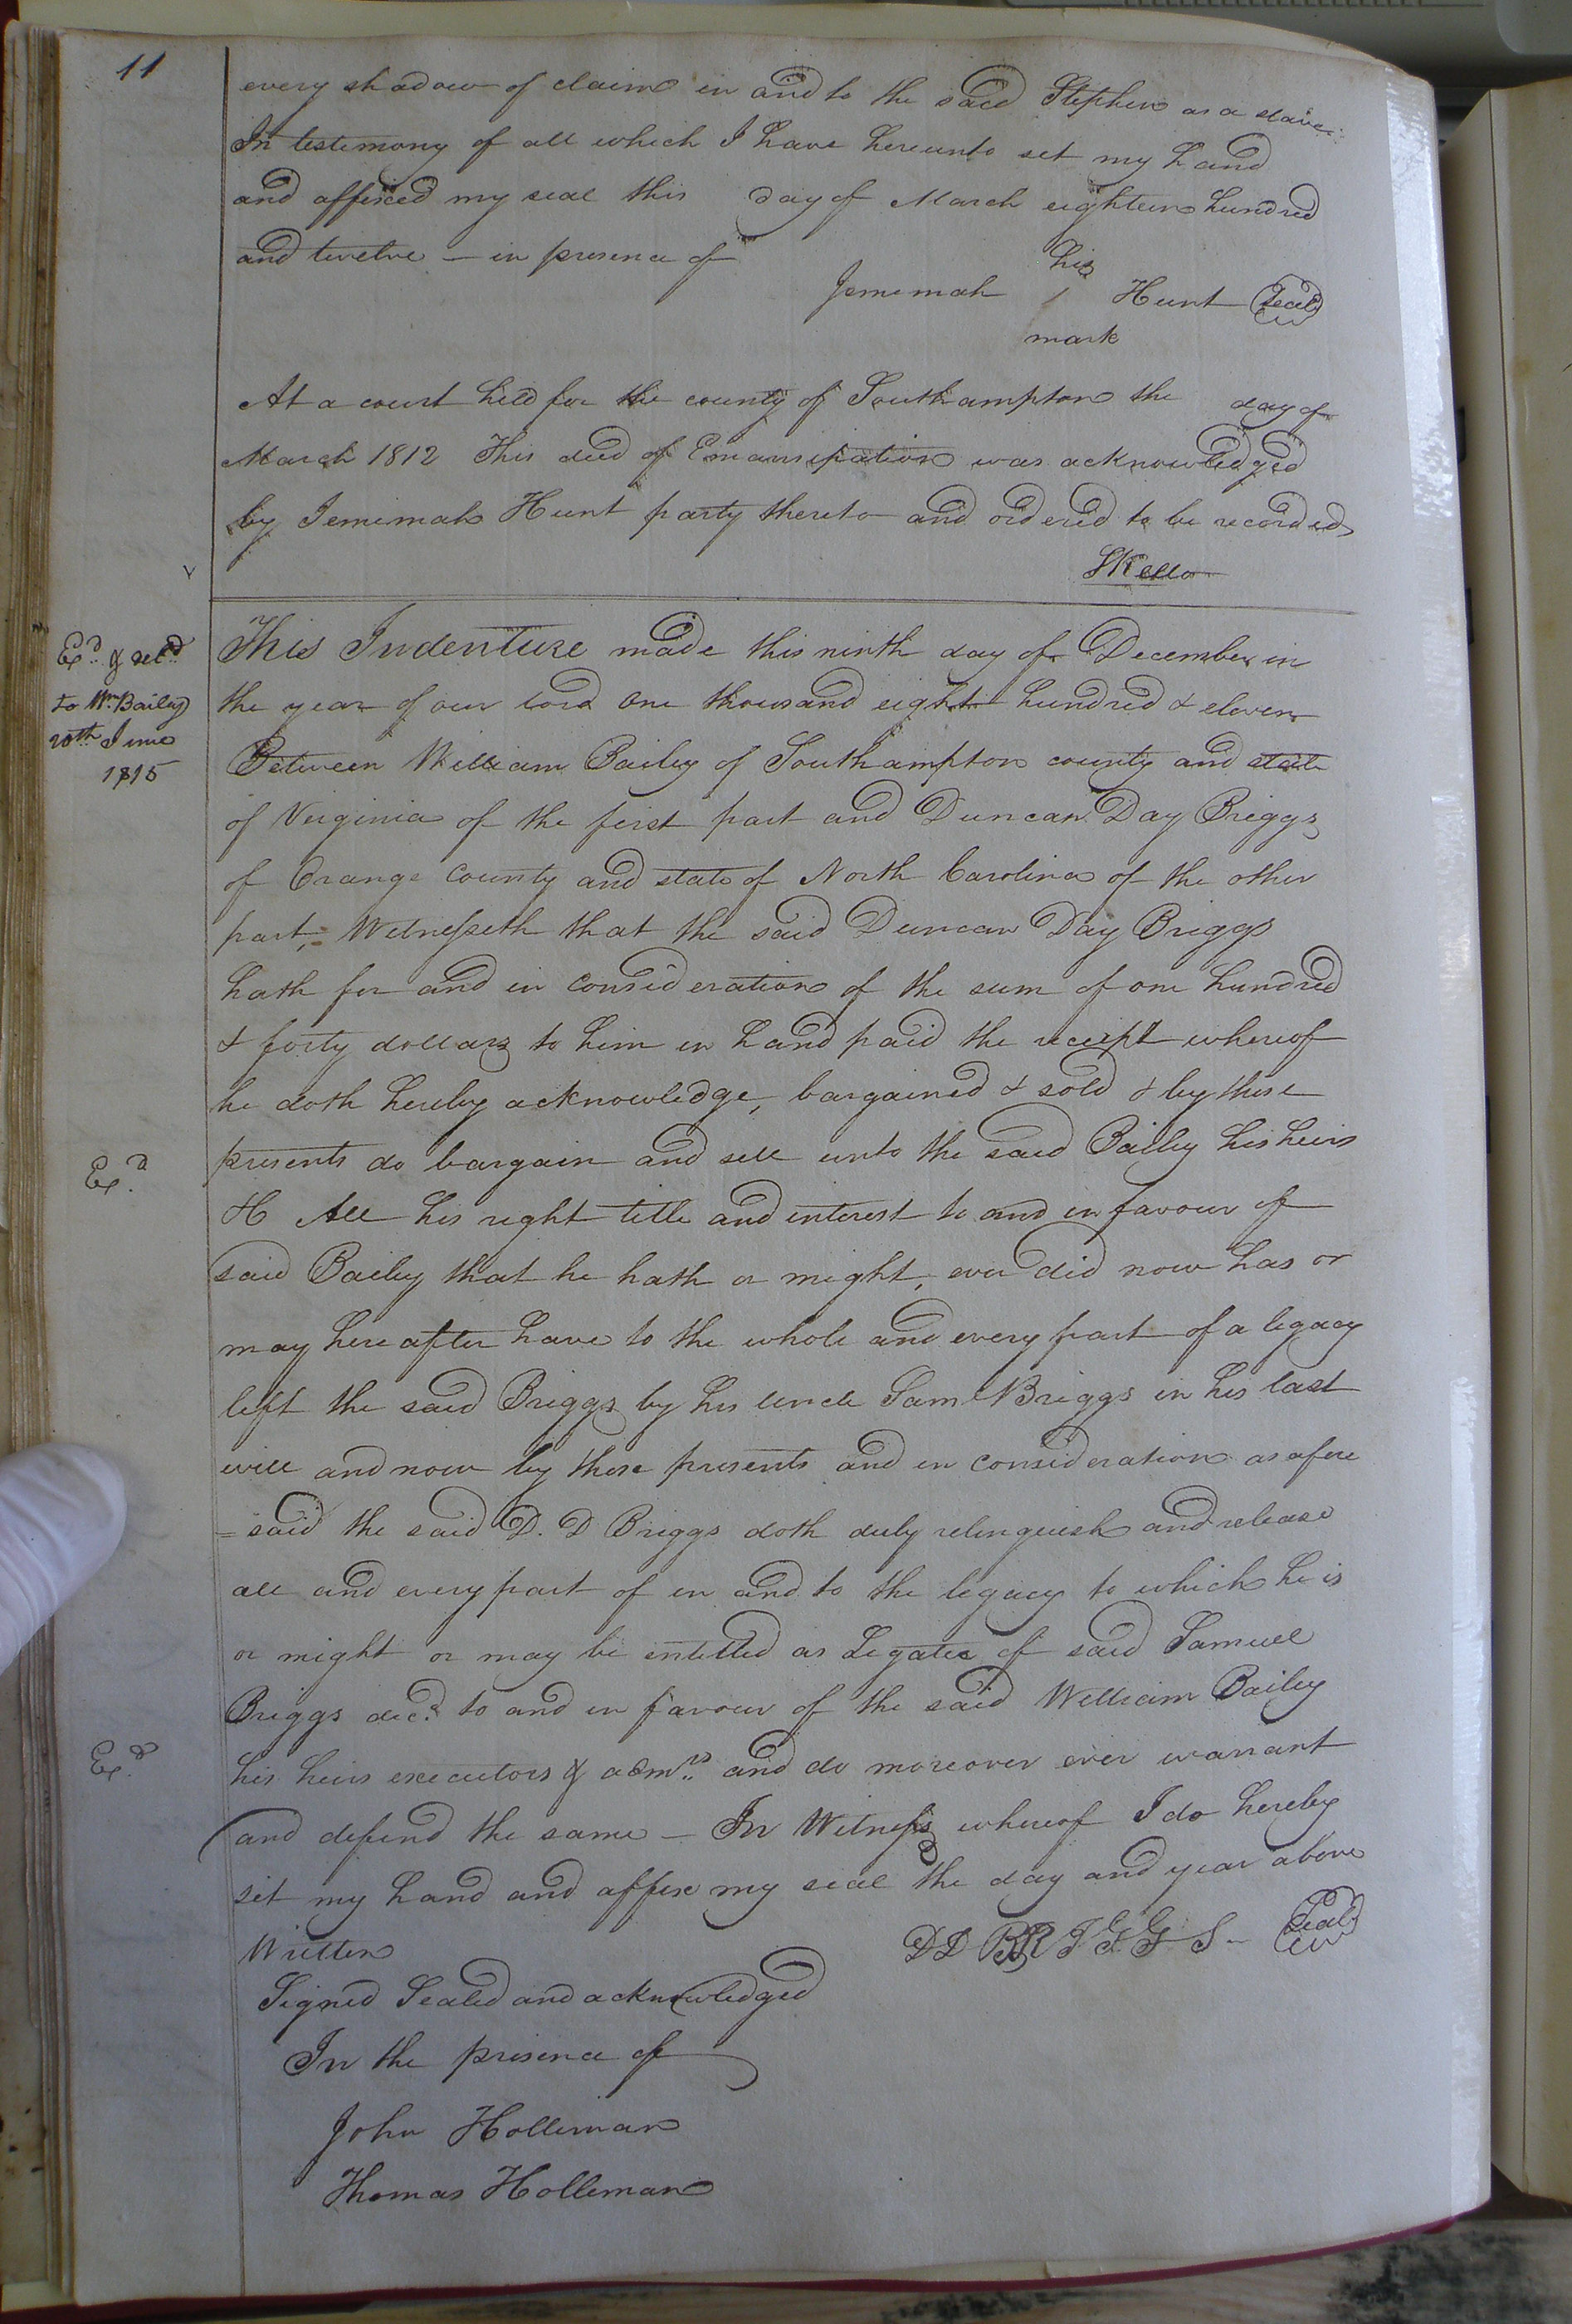 11
every shadow of claim in and to the said Stephen as a slave
In testimony of all which I have hereunto set my hand
and affixed my seal this day of March eighteen hundred
and twelve — in presence of
his
Jememah 1 Hunt Seal
mark
At a court held for the county of Southampton the day of
March 1812 This deed of Emansipation was acknowledged
by Jememah Hunt party thereto and ordered to be recorded
SKello
Exd. & deld
to Wm Bailey
20th June
1815
This Indenture made this ninth day of December in
the year of our lord one thousand eight hundred & eleven
Between William Bailey of Southampton county and state
of Virginia of the first part and Duncan Day Briggs
of Orange County and state of North Carolina of the other
part, Witnesseth that the said Duncan Day Briggs
hath for and in consideration of the sum of one hundred
& forty dollars to him in hand paid the receipt whereof
he doth hereby acknowledge, bargained & sold & by these
presents do bargain and sell unto the said Bailey his heirs
Exd.
&c All his right title and interest to and in favour of
said Bailey that he hath or might, ever did now has or
may hereafter have to the whole and every part of a legacy
left the said Briggs by his uncle Saml Briggs in his last
will and now by these presents and in consideration as afore
=said the said D. D Briggs doth duly relinquish and release
all and every part of in and to the legacy to which he is
or might or may be intitled as Legatee of said Samuel
Briggs decd. to and in favour of the said William Bailey
Exd.
his heirs executors & admrs. and do moreover ever warrant
and defend the same — In Witness whereof I do hereby
set my hand and affix my seal the day and year above
Written
DD BRIGGS — Seal
Signed Sealed and acknowledged
In the presence of
John Holleman
Thomas Holleman